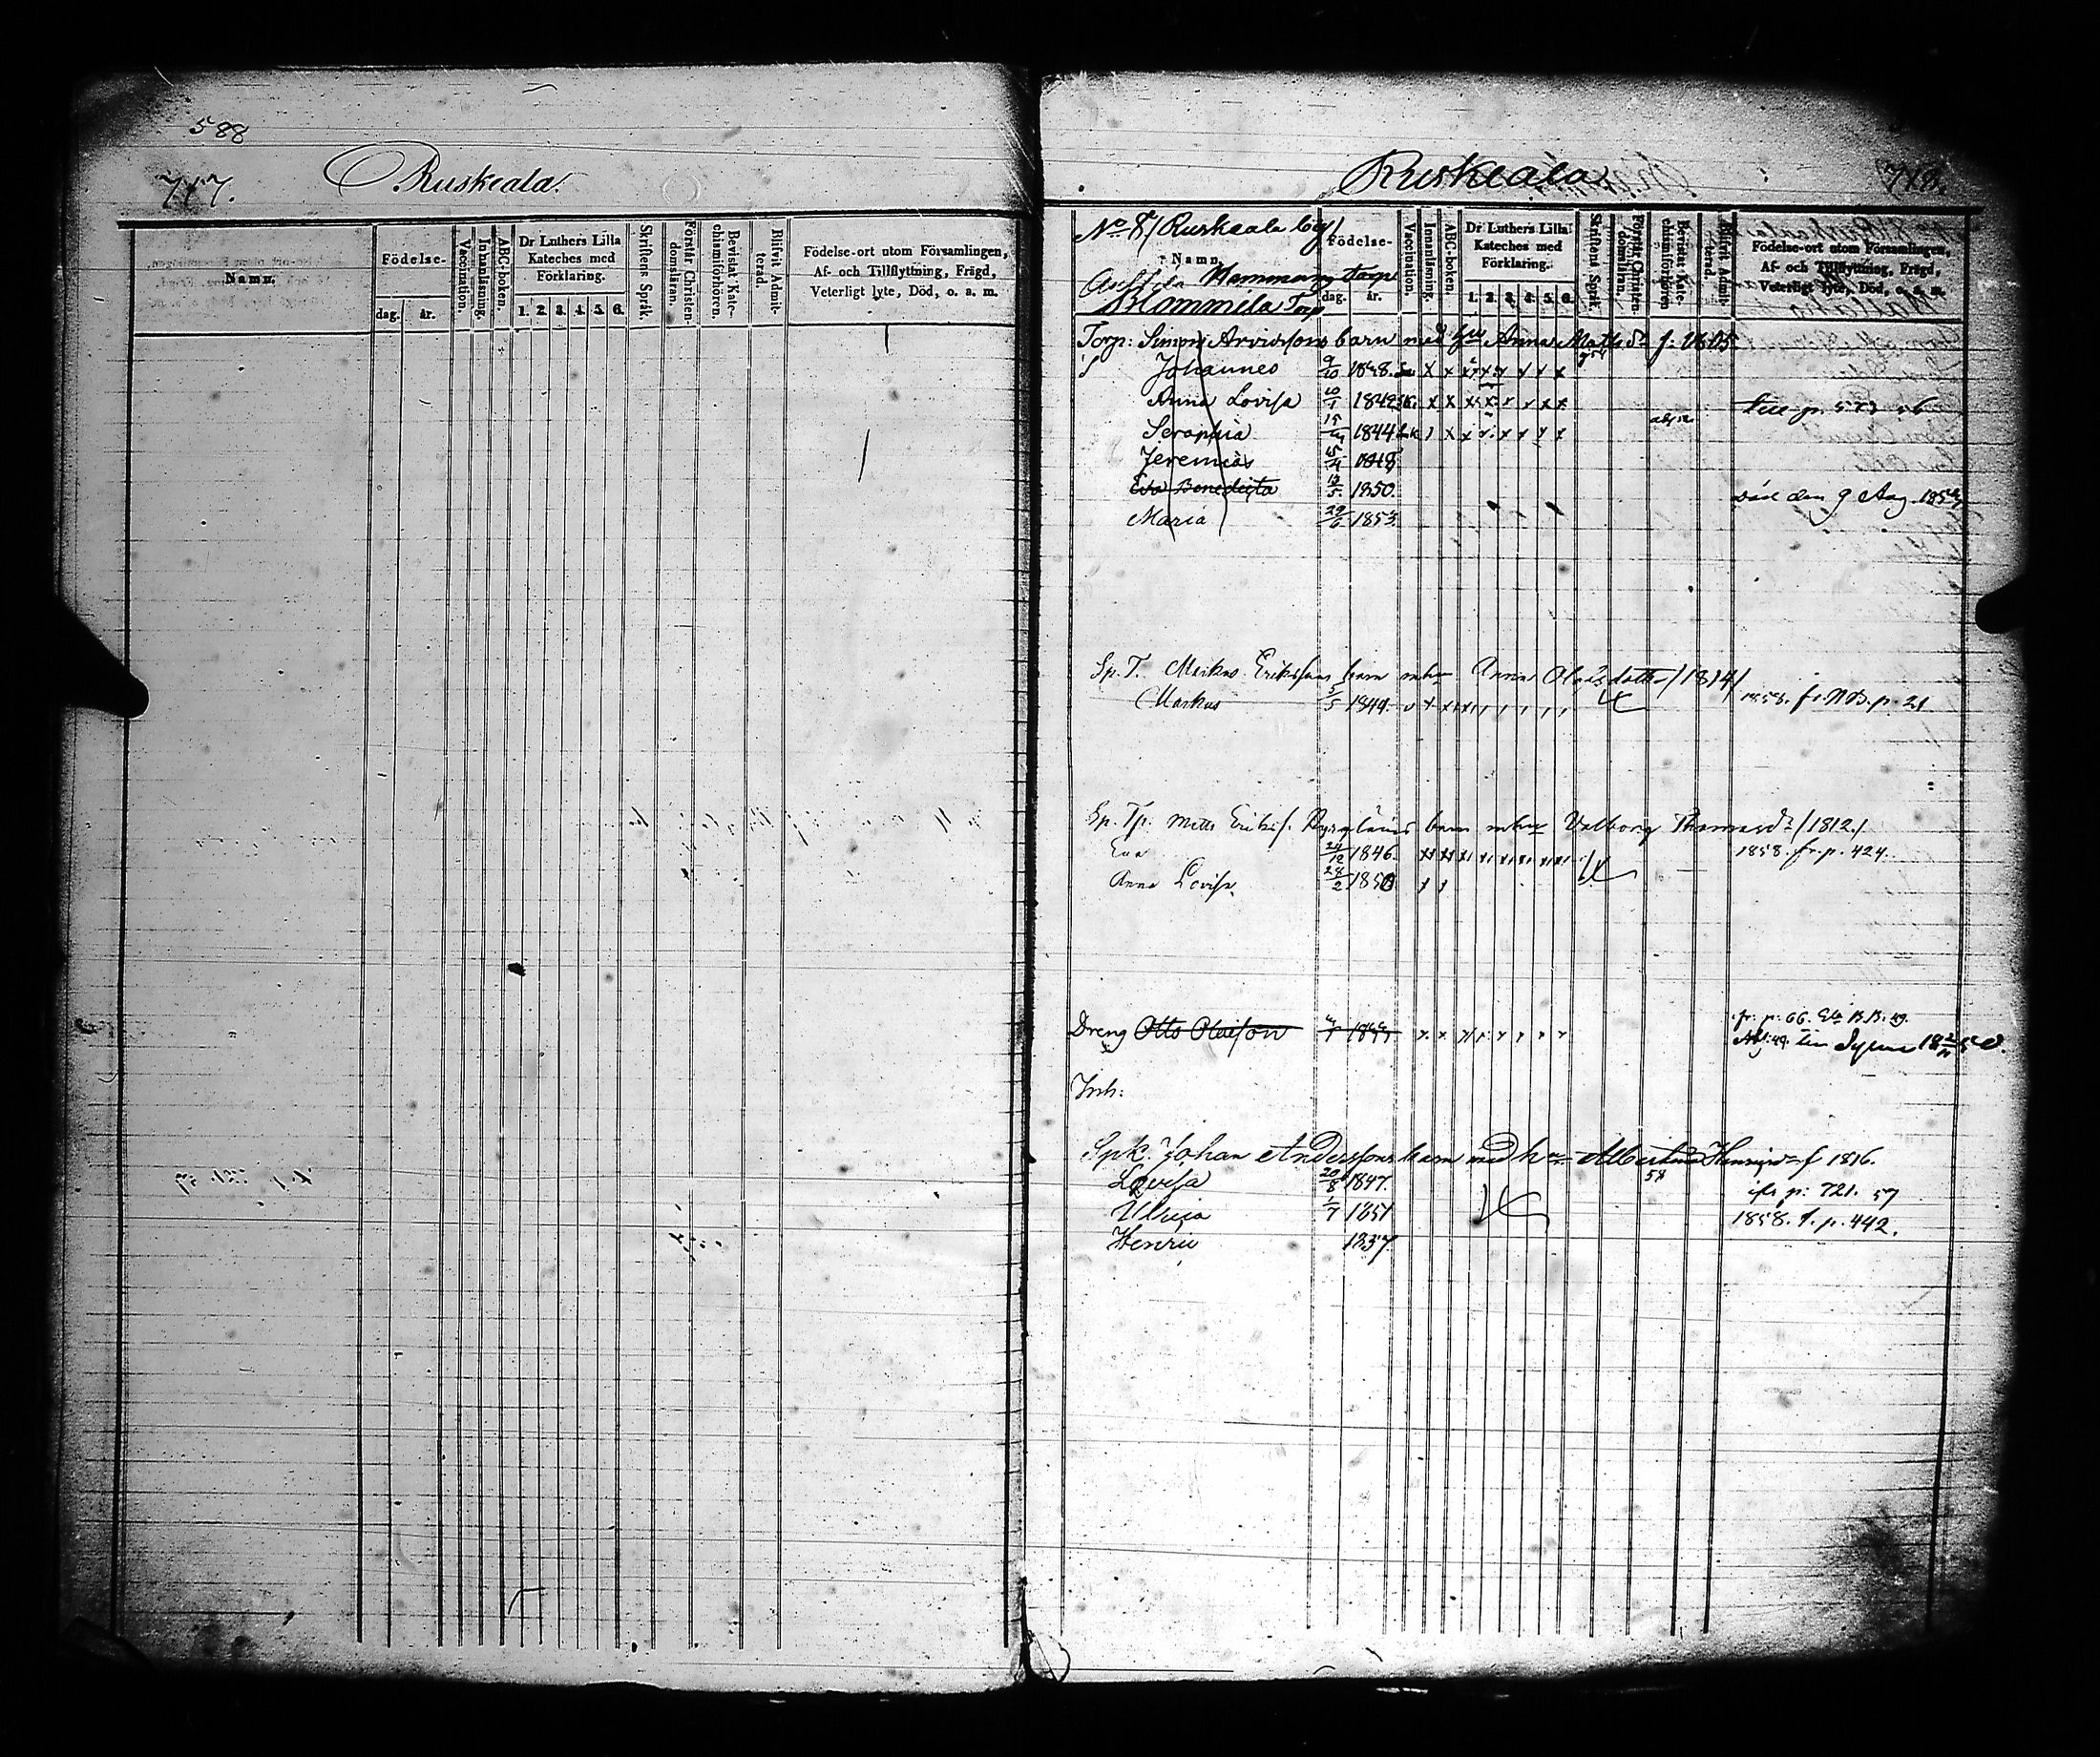 588
717. Ruskeala.
Namn.
Födelse-
dag. år.
Vaccination.
Innanläsning.
ABC-boken.
Dr Luthers Lilla Kateches med Förklaring.
1. 2. 3. 4. 5. 6.
Skriftens Språk.
Förstår Christendomsläran.
Bevistat Katechismiförhören.
Blifvit Admitterad.
Födelse-ort utom Församlingen,
Af- och Tillflyttning, Frägd,
Veterligt lyte, Död, o. a. m.
Ruskeala 718.
No 8/ Ruskeala by/
Namn
Hammars torp
Hommela Torp
Födelse-
dag. år.
Vaccination.
Innanläsning.
ABC-boken.
Dr Luthers Lilla Kateches med Förklaring.
1. 2. 3. 4. 5. 6.
Skriftens Språk.
Förstår Christendomsläran.
Bevistat Katechismiförhören.
Blifvit Admitterad.
Födelse-ort utom Församlingen,
Af- och Tillflyttning, Frägd,
Veterligt lyte, Död, o. a. m.
Torp: Simon Arvidssons barn med hu Anna Matts dr f. 1805
Johannes 9/10 1838. x x x x x x x x
Anna Lovisa 10/1 1842 x x x x x x x x
Seraphia 15/4 1844 x x x x x x x
Jeremias 15/4 1848
Eva Benedicta 13/5 1850. död den 9 Aug. 1854
Maria 29/6 1853
Sp. T. Markus Erikssons barn m hu Anna Olofsdotter /1814/
Markus 5/5 1849. 1858. fr. N.B. p. 21
Sp. Tp. Matts Eriks. barn m hu Valborg Thomasdr /1812./
Eva 24/12 1846. 1858. fr. p. 424.
Anna Lovisa 28/2 1850
Dreng Otto Olufson x x x x x x x fr. p. 66.
Inh:
Spk. Johan Anderssons barn med hu Albertina Henriksdr f 1816.
Lovisa 20/8 1847. 58 p: 721. 57
Ulrica 1/7 1851 1858. f. p. 442.
Henric 1837